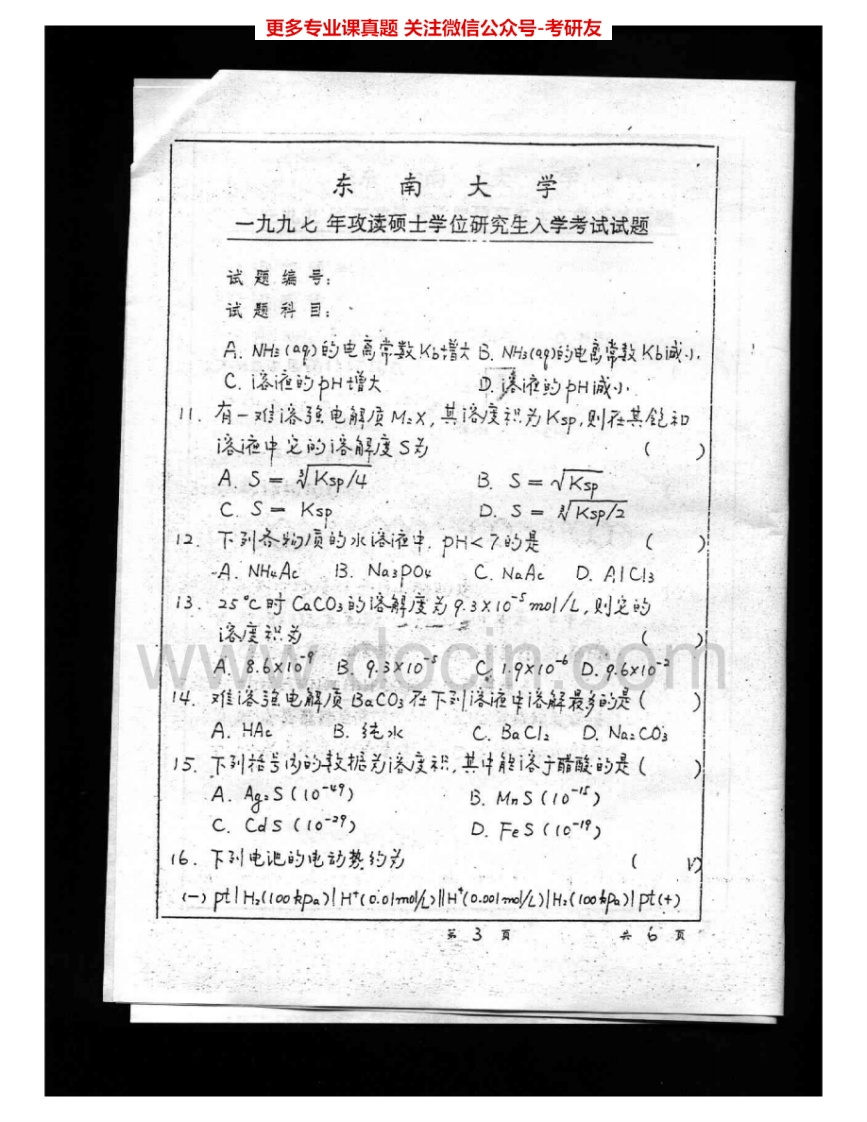 更多专业课真题 关注微信公众号-考研友
东 南 大 学
一九九七 年攻读硕士学位研究生入学考试试题
试 题 编 号:
试 题 科 目:
A. NH₃(aq)的电离常数Kb增大 B. NH₃(aq)的电离常数Kb减小.
C. 溶液的pH增大 D. 溶液的pH减小.
11. 有一难溶强电解质M₂X, 其溶度积为Ksp, 则在其饱和
溶液中它的溶解度S为 ( )
A. S = ∛Ksp/4 B. S = √Ksp
C. S = Ksp D. S = ∛Ksp/2
12. 下列各物质的水溶液中, pH<7的是 ( )
A. NH₄Ac B. Na₃PO₄ C. NaAc D. AlCl₃
13. 25°C时CaCO₃的溶解度为9.3×10⁻⁵mol/L, 则它的
溶度积为 ( )
A. 8.6×10⁻⁹ B. 9.3×10⁻⁵ C. 1.9×10⁻⁶ D. 9.6×10⁻²
www.docin.com
14. 难溶强电解质BaCO₃在下列溶液中溶解最多的是 ( )
A. HAc B. 纯水 C. BaCl₂ D. Na₂CO₃
15. 下列括号内的数据为溶度积, 其中能溶于醋酸的是 ( )
A. Ag₂S (10⁻⁴⁹) B. MnS (10⁻¹⁵)
C. CdS (10⁻²⁹) D. FeS (10⁻¹⁹)
16. 下列电池的电动势约为 ( V)
(-) pt|H₂(100kpa)|H⁺(0.01mol/L)||H⁺(0.001mol/L)|H₂(100kpa)|pt(+)
第 3 页 共 6 页